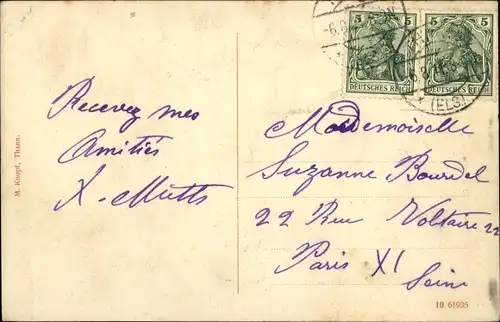 5 5
5 5
DEUTSCHES REICH
DEUTSCHES REICH
(ELS)
M. Knopf, Thann.
Recevez mes
Amitiés
Mademoiselle
Suzanne Bourdel
22 Rue Voltaire 22
Paris XI
Seine
10 61935